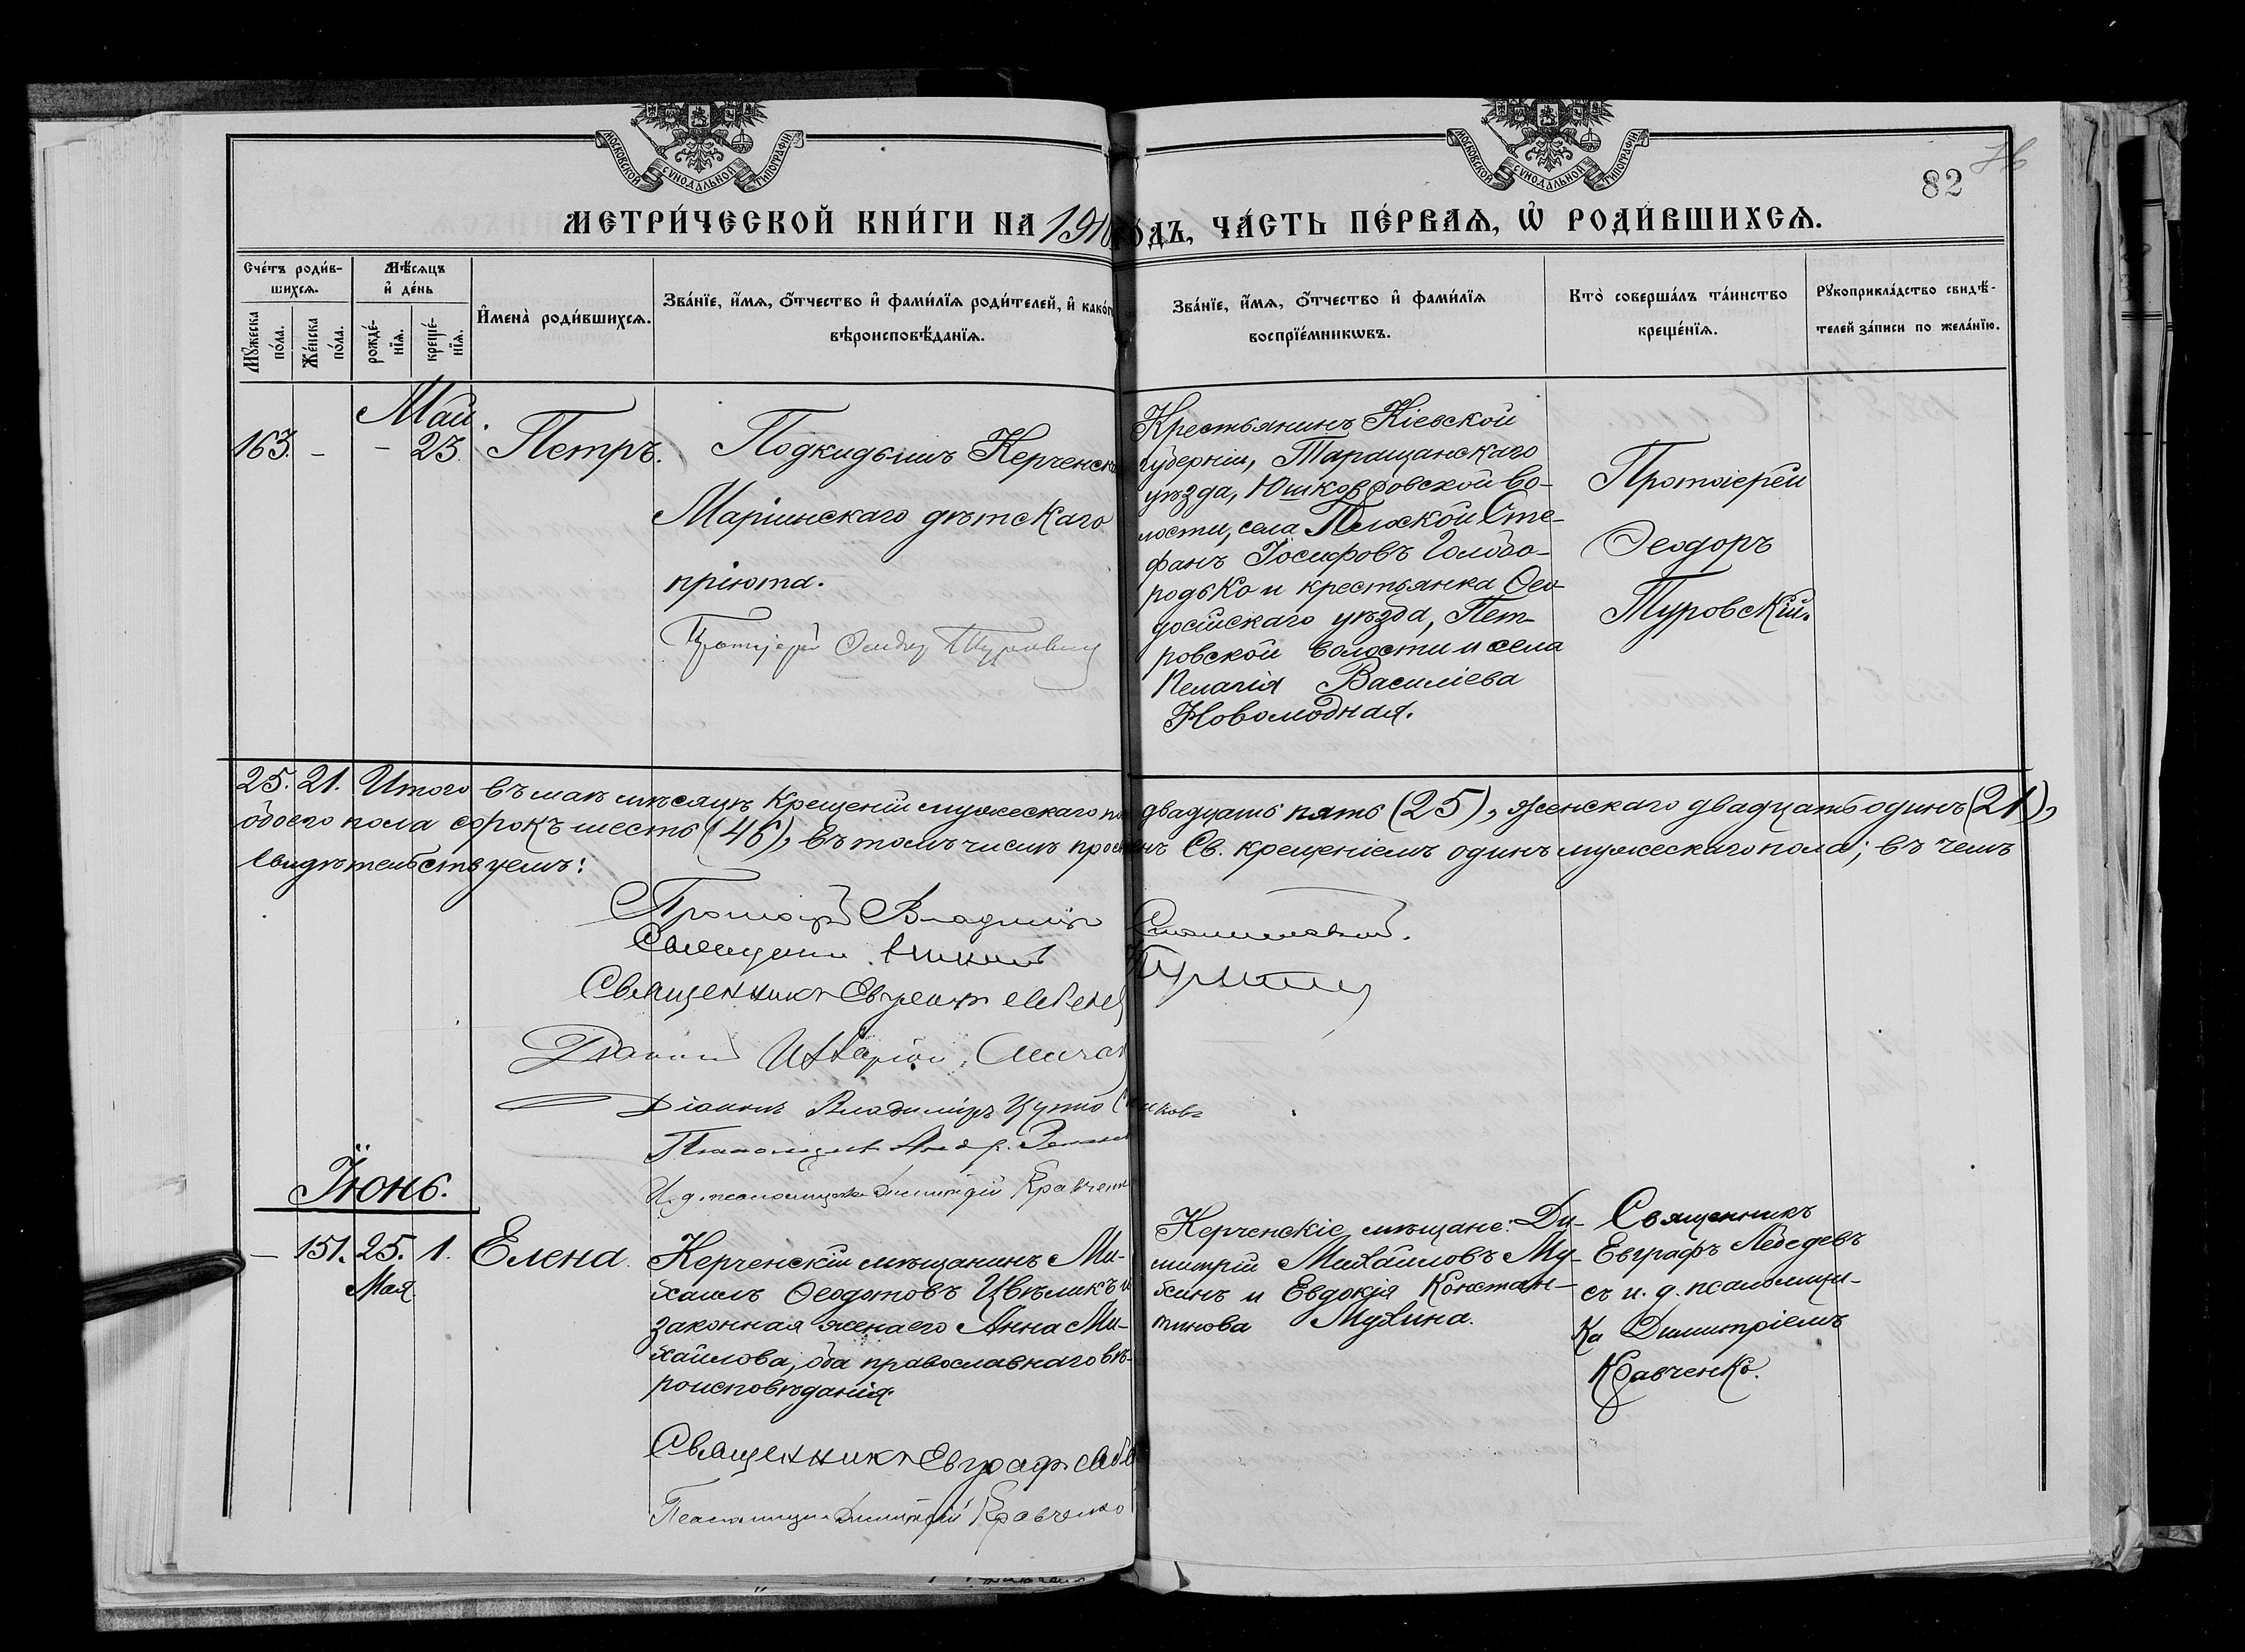 МОСКОВСКОЙ СУНОДАЛЬНОЙ ТИПОГРАФІИ
МОСКОВСКОЙ СУНОДАЛЬНОЙ ТИПОГРАФІИ
82
МЕТРИ́ЧЕСКОЙ КНИ́ГИ НА 1910 ГО́ДЪ, ЧА́СТЬ ПЕ́РВАЯ, Ѡ҆ РОДИ́ВШИХСЯ.
Сче́тъ роди́вшихся.
Мѣ́сяцъ и҆ де́нь
И҆мена̀ роди́вшихся.
Зва́нїе, и҆́мя, ѻ҆́тчество и҆ фами́лїя роди́телей, и҆ како́гѡ
вѣроисповѣ́данїя.
Зва́нїе, и҆́мя, ѻ҆́тчество и҆ фами́лїя
воспрїе́мникѡвъ.
Кто̀ соверша́лъ та́инство
креще́нїя.
Рꙋкоприкла́дство свидѣ́-
телей за́писи по жела́нїю.
Мꙋ́жеска по́ла.
Же́нска по́ла.
рожде́нїя.
креще́нїя.
Май.
163. – – 23. Петръ.
Подкидышъ Керченск
Маріинскаго дѣтскаго
пріюта.
Протоіерей Ѳеодор Туровскій
Крестьянинъ Кіевской
губерніи, Таращанскаго
уѣзда, Юшков Ровской во-
лости, села Плоской Сте-
фанъ Іосифовъ Голобо-
родько и крестьянка Ѳео-
досійскаго уѣзда, Пет-
ровской волости и села
Пелагія Василіева
Новомодная.
Протоіерей
Ѳеодоръ
Туровскій.
25. 21. Итого въ маѣ мѣсяцѣ крещеній мужескаго по двадцать пять (25), женскаго двадцать одинъ (21),
обоего пола сорокъ шесть (46), въ томъ числѣ просвѣ нъ Св. крещеніемъ одинъ мужескаго пола; въ чемъ
свидѣтельствуемъ:
Протоіерей Владиміръ
Священникъ
Священникъ Евграфъ Лебедев
Діаконъ
Діаконъ Владиміръ
Псаломщикъ
И. д. псаломщика Димитрій Кравченко
Іюнь.
– 151. 25. 1. Елена.
Мая
Керченскій мѣщанинъ Ми-
хаилъ Ѳеодотовъ Цвѣликъ и
законная жена его Анна Ми-
хайлова, оба православнаго вѣ-
роисповѣданія.
Священникъ Евграфъ Лебе
Псаломщикъ Димитрій Кравченко
Керченскіе мѣщане: Ди-
митрій Михайловъ Му-
хинъ и Евдокія Констан-
тинова Мухина.
Священникъ
Евграфъ Лебедевъ
съ и. д. псаломщи-
ка Димитріемъ
Кравченко.